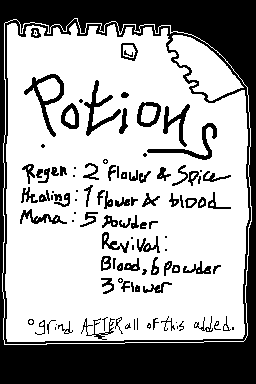 Potions
Regen: 2 °flower & Spice
Healing: 1 flower & blood
Mana: 5 Powder
Revival:
Blood, 6 Powder
3 °flower
° grind AFTER all of this added.